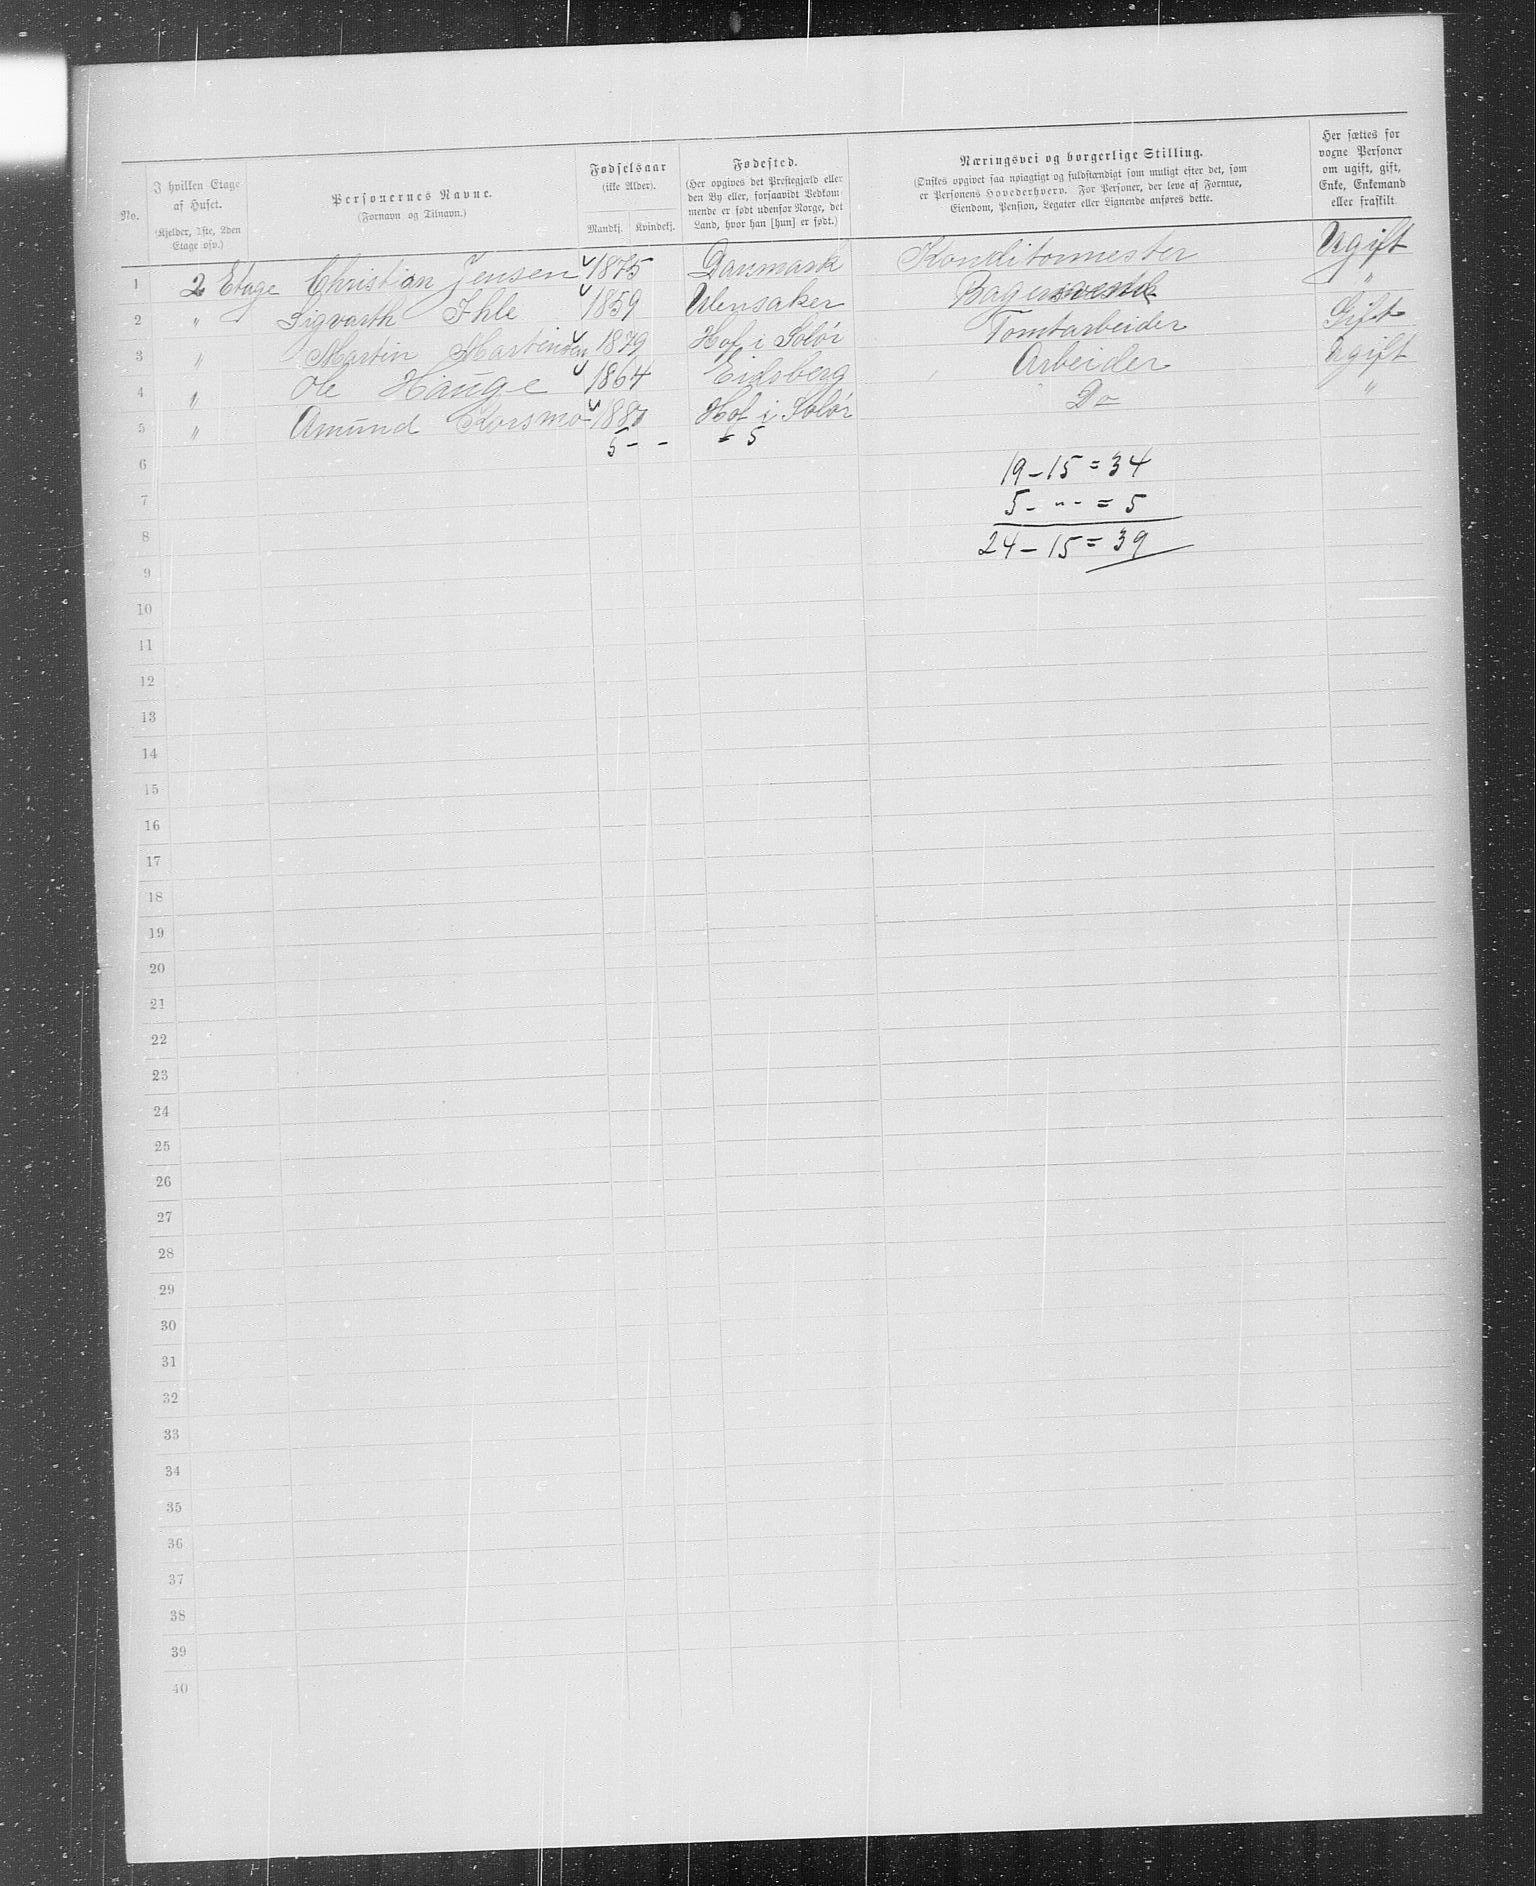 No.
I hvilken Etage af Huset.
(Kjelder, 1ste, 2den Etage osv.)
Personernes Navne.
(Fornavn og Tilnavn.)
Fødselsaar
(ikke Alder).
Mandkj. Kvindekj.
Fødested.
(Her opgives det Prestegjæld eller
den By eller, forsaavidt Vedkom-
mende er født udenfor Norge, det
Land, hvor han [hun] er født.)
Næringsvei og borgerlige Stilling.
(Ønskes opgivet saa nøiagtigt og fuldstændigt som muligt efter det, som
er Personens Hovederhverv. For Personer, der leve af Formue,
Eiendom, Pension, Legater eller Lignende anføres dette.
Her sættes for
voxne Personer
om ugift, gift,
Enke, Enkemand
eller fraskilt.
1 2 Etage Christian Jensen 1875 Danmark Konditormester Ugift
2 " Sigvarth Ihle 1859 Ulensaker Bagersvend "
3 " Martin Martinsen 1879 Hof i Solør Tomtarbeider Gift
4 " Ole Hauge 1864 Eidsberg Arbeider Ugift
5 " Amund Korsmo 1887 Hof i Solør Do "
5 - - = 5
6
19 - 15 = 34
7
5 - -- = 5
8
24 - 15 = 39
9
10
11
12
13
14
15
16
17
18
19
20
21
22
23
24
25
26
27
28
29
30
31
32
33
34
35
36
37
38
39
40